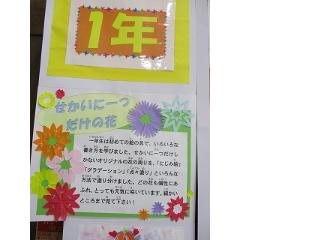 1年
せかいに一つ
だけの花
一年生は初めての絵の具で、いろいろな
描き方を学びました。せかいに一つだけし
かないオリジナルの花の周りを、「にじみ絵」
「グラデーション」「点々塗り」といろんな
方法で塗り分けました。どの花も個性にあ
ふれ、とっても元気に咲いています。細かい
ところまで見て下さい！